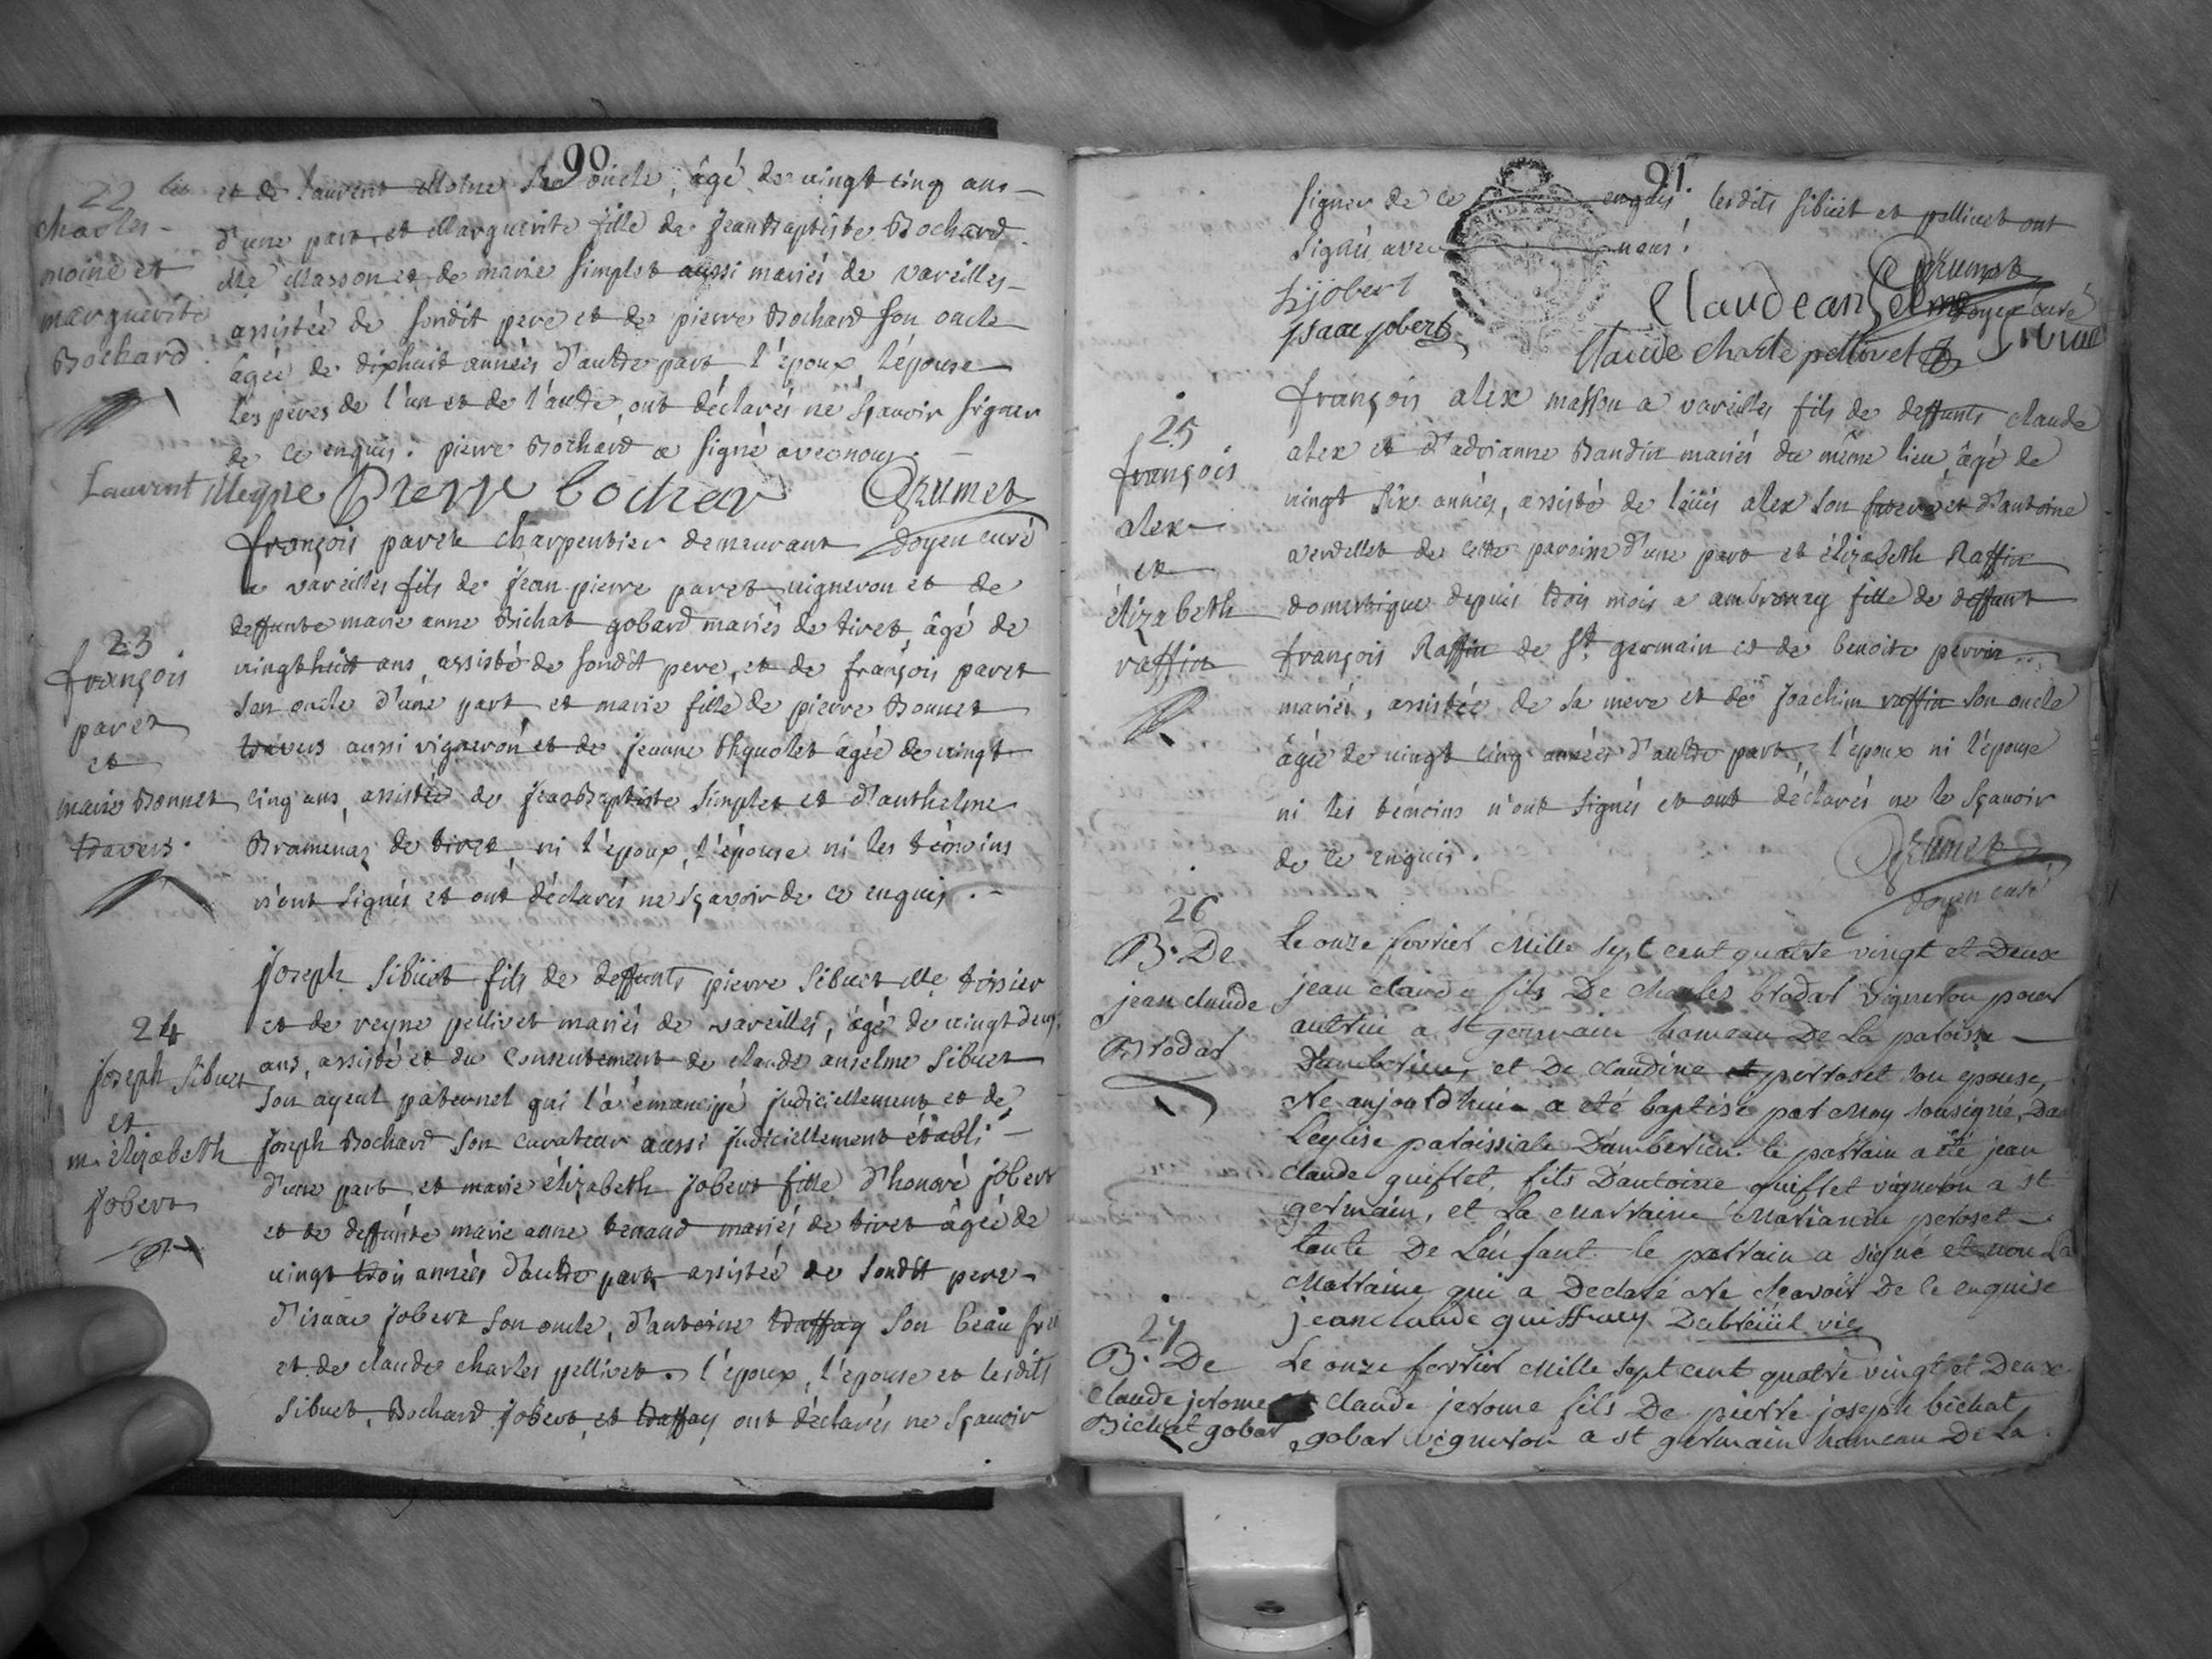 90
22
charles
moine et
marguerite
Bochard
et de laurent Moine son oncle, âgé de vingt cinq ans
d'une part, et Marguerite fille de Jean Baptiste Bochard
Me Masson et de marie simplet aussi mariés de vareilles
assistée de sondit pere et de pierre Bochard son oncle
âgée de dixhuit années d'autre part l'époux, l'épouse
les peres de l'un et de l'autre, ont déclarés ne sçavoir signer
de ce enquis. pierre Bochard a signé avec nous.
Laurent Moyne Pierre bochar Grumet
doyen curé
23
françois
paret
et
marie Bonnet
travers
françois paret charpentier demeurant
a vareilles fils de Jean pierre paret vigneron et de
deffunte marie anne Bichat gobard mariés de tiret âgé de
vingthuit ans, assisté de sondit pere, et de françois paret
son oncle d'une part, et marie fille de pierre Bonnet
travers aussi vigneron et de jeanne âgée de vingt
cinq ans, assistée de Jean Baptiste simplet et d'anthelme
Bramenas de tiret, ni l'époux, l'épouse ni les témoins
n'ont signés et ont déclarés ne sçavoir de ce enquis.
24
joseph sibuet
et
m. élizabeth
jobert
Joseph Sibuet fils de deffunts pierre Sibuet Me tissier
et de reyne pellivet mariés de vareilles, âgé de vingt deux
ans, assisté et du consentement de claude anselme Sibuet
son ayeul paternel qui l'a émancipé judiciellement et de
joseph Bochard son curateur aussi judiciellement établi
d'une part, et marie élizabeth jobert fille d'honoré jobert
et de deffunte marie anne tenand mariés de tiret âgée de
vingt trois années d'autre part, assistée de sondit pere
d'isaac jobert son oncle, d'antoine traffay son beau fre
et de claude charles pellivet. l'époux, l'épouse et lesdits
Sibuet, Bochard, jobert, et traffay ont déclarés ne sçavoir
91.
signer de ce enquis, lesdits sibuet et pellivet ont
signés avec nous.
h jobert
isaac jobert
Grumet
doyen curé
Claude anselme Sibuet
Claude charle pellivet
25
françois
alex
et
élizabeth
raffin
françois alex masson a vareilles fils de deffunts claude
alex et d'adrianne Baudin mariés du même lieu âgé de
vingt six années, assisté de loüis alex son frere et d'antoine
verdellet de cette paroisse d'une part et élizabeth Raffin
domestique depuis trois mois a ambronay fille de deffunt
françois Raffin de St germain et de benoite perrin
mariés, assistée de sa mere et de joachim raffin son oncle
âgée de vingt cinq années d'autre part, l'époux ni l'épouse
ni les témoins n'ont signés et ont déclarés ne le sçavoir
de ce enquis.
Grumet
doyen curé
26
B. De
jean claude
Brodar
Le onze fevrier Mille sept cent quatre vingt et Deux
jean claude fils De charles brodar vigneron pour
autrui a st germain hameau De La paroisse
Damberieu, et De claudine perroset son epouse,
Ne aujourdhuii a eté baptise par moy sousigné, Dans
Leglise paroissiale Damberieu. le parrain a été jean
claude guiffret, fils Dantoine guiffret vigneron a st
germain, et La Marraine Marianne peroset
tante De Lenfant. le parrain a signé et non La
Marraine qui a Declaré Ne scavoir De ce enquise
jean claude guiffrey Dubreüil vic
27
B. De
claude jerome
Bichat gobar
Le onze fevrier Mille sept cent quatre vingt et Deux
claude jerome fils De pierre joseph bichat
gobar vigneron a st germain hameau De La